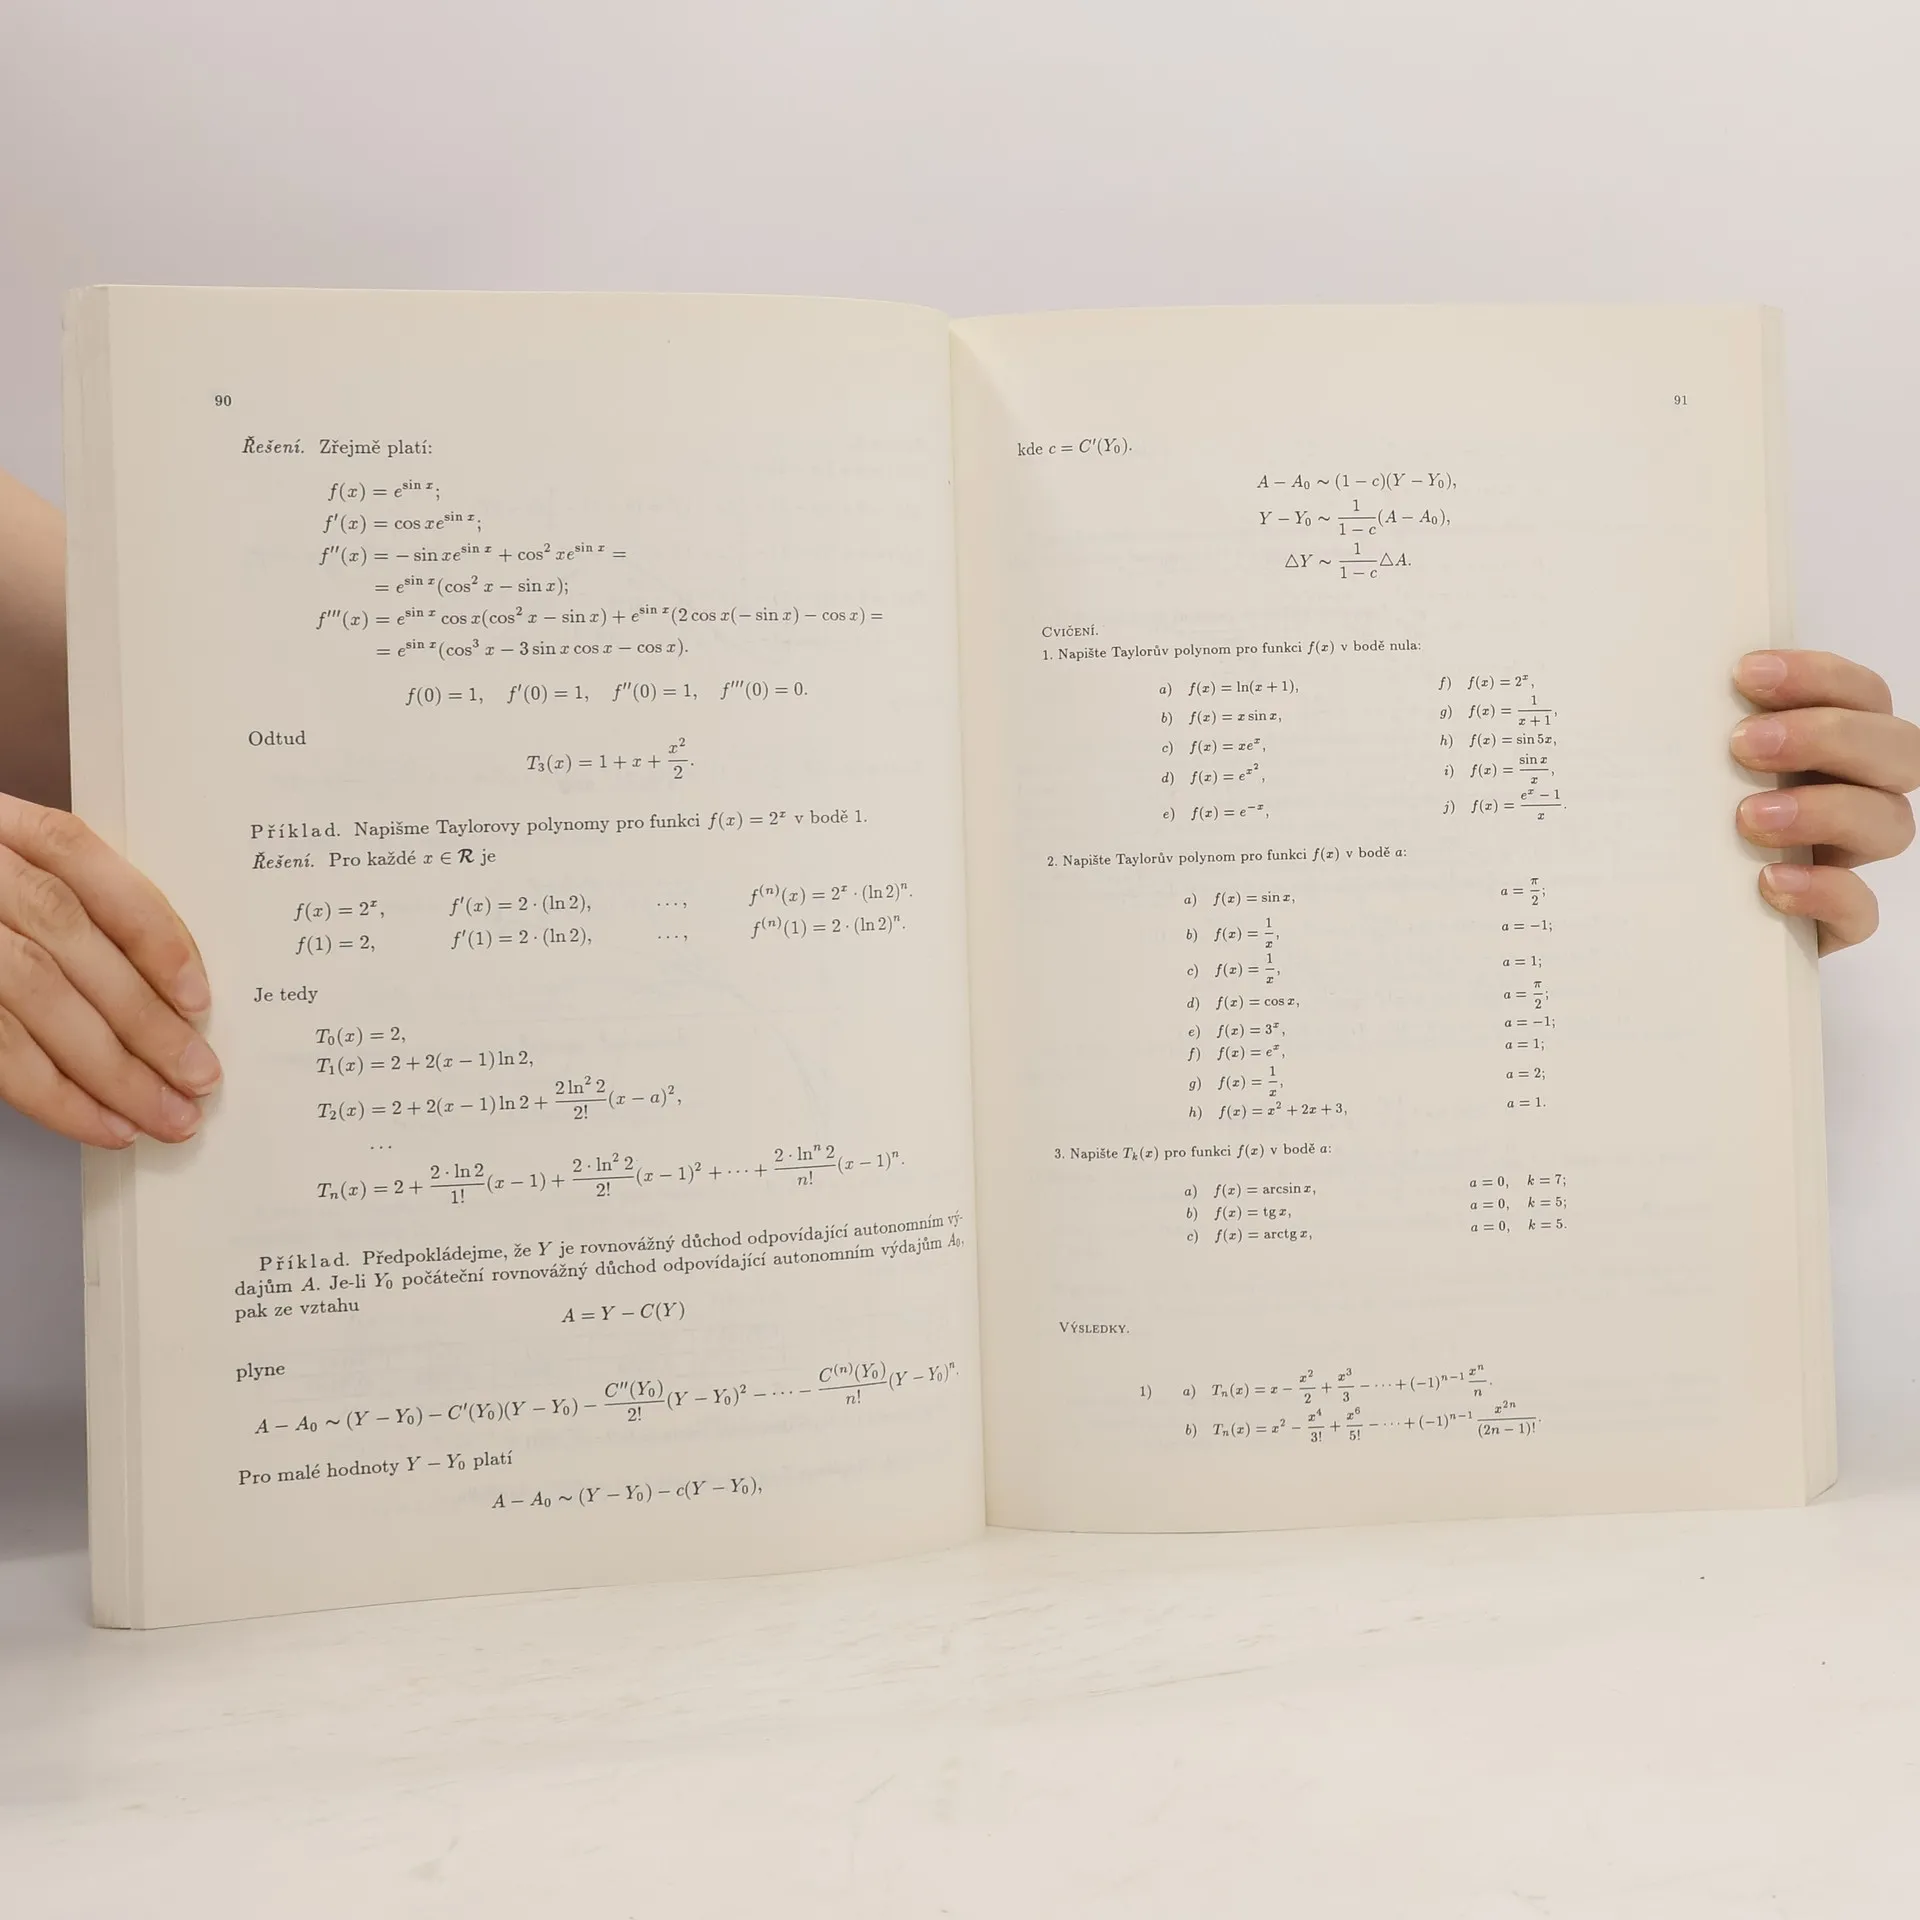 90
Řešení. Zřejmě platí:
f(x) = e^{sin x};
f′(x) = cos xe^{sin x};
f″(x) = − sin xe^{sin x} + cos² xe^{sin x} =
= e^{sin x}(cos² x − sin x);
f‴(x) = e^{sin x} cos x(cos² x − sin x) + e^{sin x}(2 cos x(− sin x) − cos x) =
= e^{sin x}(cos³ x − 3 sin x cos x − cos x).
f(0) = 1, f′(0) = 1, f″(0) = 1, f‴(0) = 0.
Odtud
T₃(x) = 1 + x + x²/2.
Příklad. Napišme Taylorovy polynomy pro funkci f(x) = 2^x v bodě 1.
Řešení. Pro každé x ∈ R je
f(x) = 2^x, f′(x) = 2 · (ln 2), ..., f^{(n)}(x) = 2^x · (ln 2)^n.
f(1) = 2, f′(1) = 2 · (ln 2), ..., f^{(n)}(1) = 2 · (ln 2)^n.
Je tedy
T₀(x) = 2,
T₁(x) = 2 + 2(x − 1) ln 2,
T₂(x) = 2 + 2(x − 1) ln 2 + (2 ln² 2)/2! (x − a)²,
...
Tₙ(x) = 2 + (2 · ln 2)/1! (x − 1) + (2 · ln² 2)/2! (x − 1)² + ··· + (2 · lnⁿ 2)/n! (x − 1)ⁿ.
Příklad. Předpokládejme, že Y je rovnovážný důchod odpovídající autonomním vý-
dajům A. Je-li Y₀ počáteční rovnovážný důchod odpovídající autonomním výdajům A₀,
pak ze vztahu
A = Y − C(Y)
plyne
A − A₀ ∼ (Y − Y₀) − C′(Y₀)(Y − Y₀) − C″(Y₀)/2! (Y − Y₀)² − ··· − C^{(n)}(Y₀)/n! (Y − Y₀)ⁿ.
Pro malé hodnoty Y − Y₀ platí
A − A₀ ∼ (Y − Y₀) − c(Y − Y₀),
91
kde c = C′(Y₀).
A − A₀ ∼ (1 − c)(Y − Y₀),
Y − Y₀ ∼ 1/(1 − c) (A − A₀),
△Y ∼ 1/(1 − c) △A.
CVIČENÍ.
1. Napište Taylorův polynom pro funkci f(x) v bodě nula:
a) f(x) = ln(x + 1), f) f(x) = 2^x,
b) f(x) = x sin x, g) f(x) = 1/(x + 1),
c) f(x) = xe^x, h) f(x) = sin 5x,
d) f(x) = e^{x²}, i) f(x) = sin x/x,
e) f(x) = e^{−x}, j) f(x) = (e^x − 1)/x.
2. Napište Taylorův polynom pro funkci f(x) v bodě a:
a) f(x) = sin x, a = π/2;
b) f(x) = 1/x, a = −1;
c) f(x) = 1/x, a = 1;
d) f(x) = cos x, a = π/2;
e) f(x) = 3^x, a = −1;
f) f(x) = e^x, a = 1;
g) f(x) = 1/x, a = 2;
h) f(x) = x² + 2x + 3, a = 1.
3. Napište Tₖ(x) pro funkci f(x) v bodě a:
a) f(x) = arcsin x, a = 0, k = 7;
b) f(x) = tg x, a = 0, k = 5;
c) f(x) = arctg x, a = 0, k = 5.
VÝSLEDKY.
1) a) Tₙ(x) = x − x²/2 + x³/3 − ··· + (−1)^{n−1} xⁿ/n.
b) Tₙ(x) = x² − x⁴/3! + x⁶/5! − ··· + (−1)^{n−1} x^{2n}/(2n − 1)!.